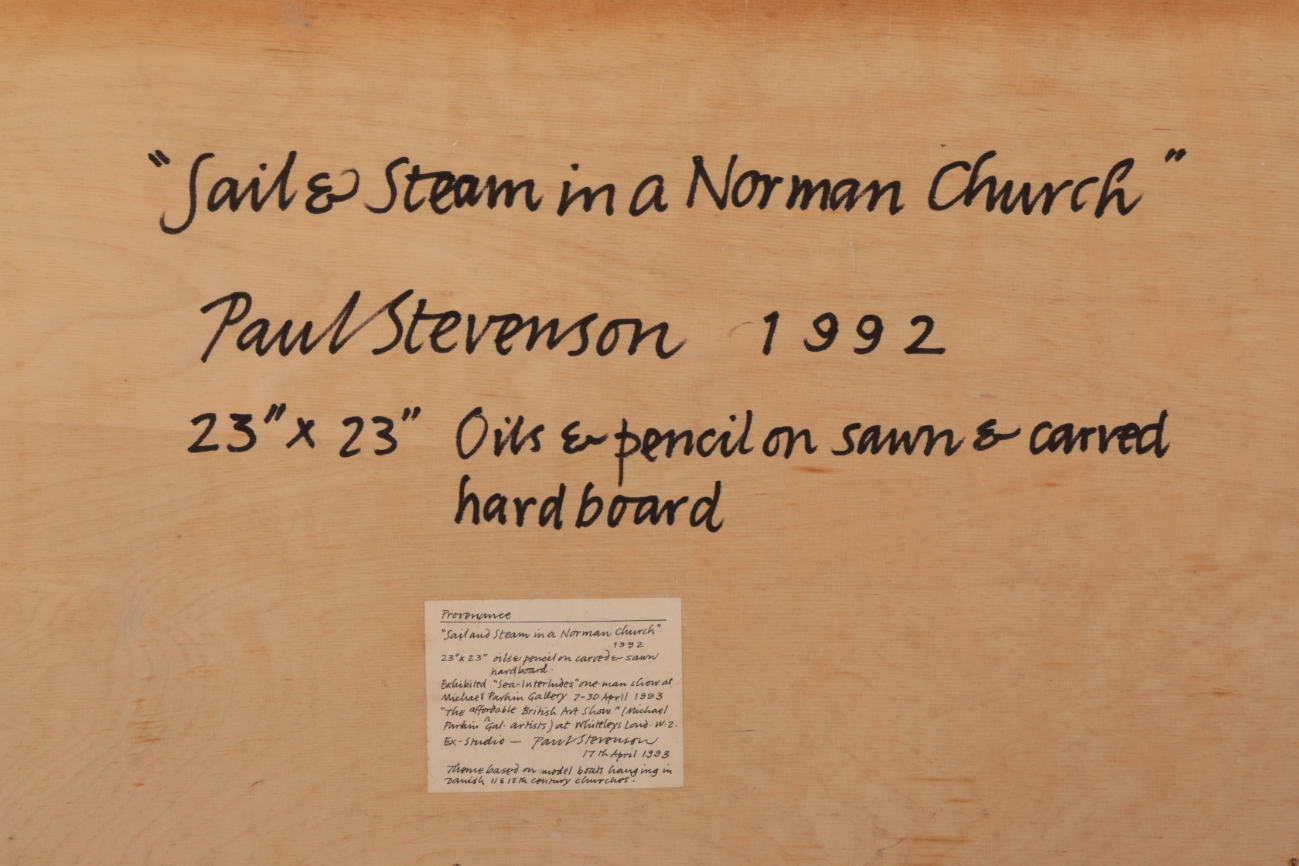 "Sail & Steam in a Norman Church"
Paul Stevenson 1992
23" x 23" Oils & pencil on sawn & carved
hardboard
Provenance
"Sail and Steam in a Norman Church"
1992
23" x 23" oils & pencil on carved & sawn
hardboard.
Exhibited "Sea-Interludes" one-man show at
Michael Parkin Gallery 7-30 April 1993
"The affordable British Art Show" (Michael
Parkin Gal. artists) at Whiteleys Lond. W.2.
Ex-Studio — Paul Stevenson
17th April 1993
Theme based on model boats hanging in
Danish 11 & 12th century churches.